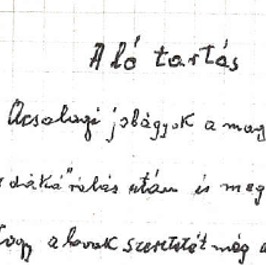 A ló tartás
Acsalagi jobágyok a mag
dáká" rabás után is meg
hogy a lovak szeretetét még a